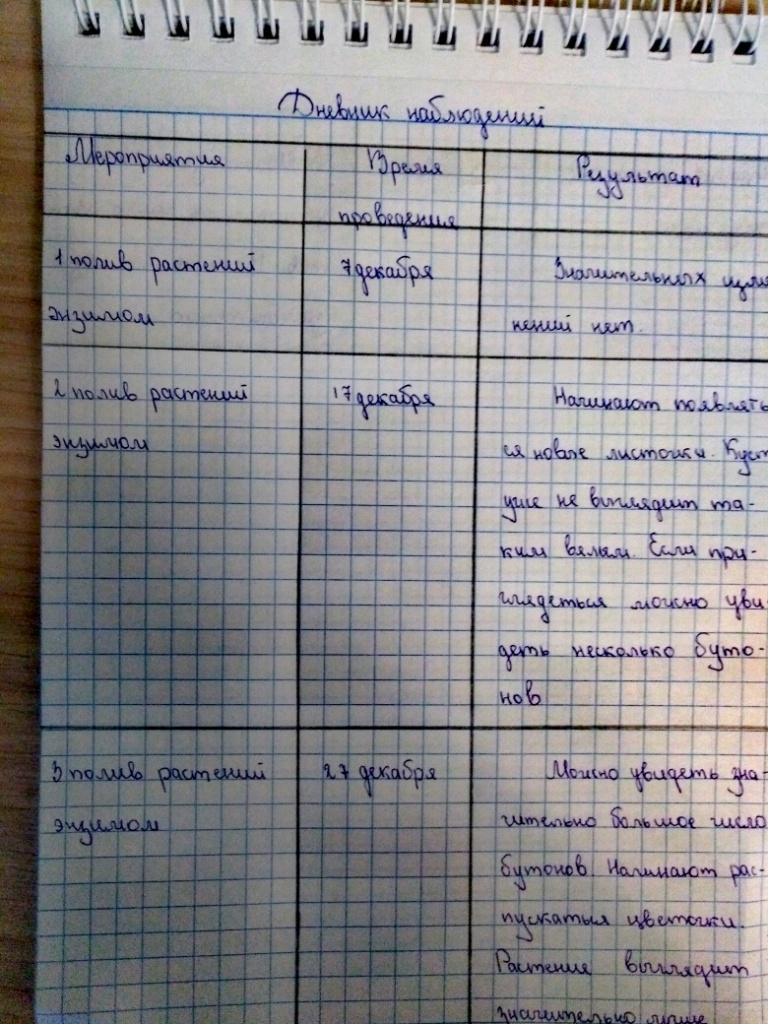 Дневник наблюдений
Мероприятия
Время
проведения
Результат
1 полив растений
энзимом
7 декабря
Значительных изме
нений нет.
2 полив растений
энзимом
17 декабря
Начинают появлять
ся новые листочки. Куст
уже не выглядит та-
ким вялым. Если при-
глядеться можно уви
деть несколько буто-
нов
3 полив растений
энзимом
27 декабря
Можно увидеть зна-
чительно большое число
бутонов. Начинают рас-
пускаться цветочки.
Растение выглядит
значительно лучше